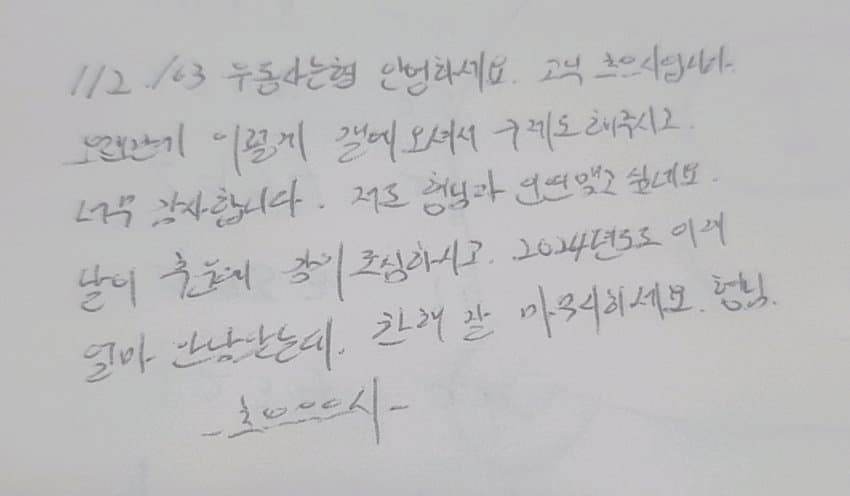 112./163 우동사는형 안녕하세요. 고닉 초으시입니다.
오랜만에 이렇게 갤에 오셔서 구제도 해주시고.
너무 감사합니다. 저도 형님과 인연맺고 싶네요.
날이 추운데 감기 조심하시고. 2024년도도 이제
얼마 안남았는데. 한해 잘 마무리하세요. 형님.
- 초으으으시 -